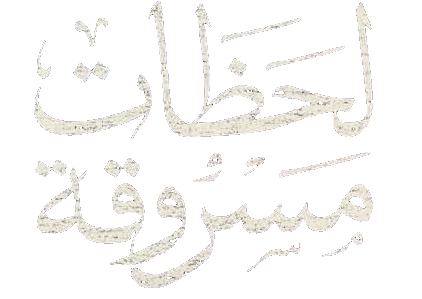 لحظات
مسروقة